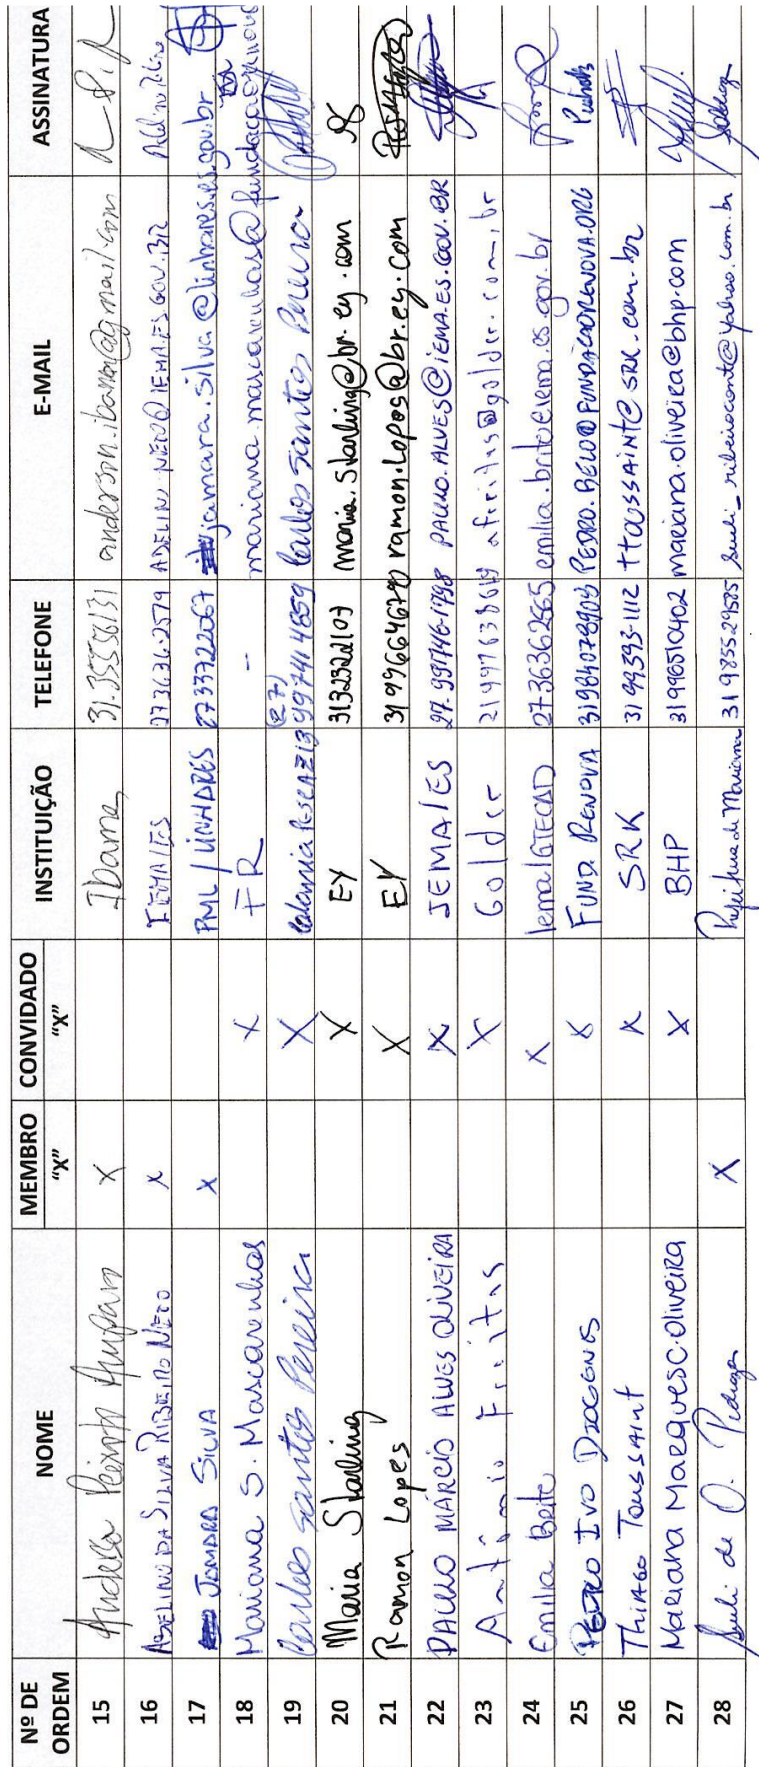 Nº DE ORDEM NOME MEMBRO "X" CONVIDADO "X" INSTITUIÇÃO TELEFONE E-MAIL ASSINATURA
15 Peixoto Amparo X Ibama 31.35556131
16 ADELINO DA SILVA RIBEIRO NETO x IEMA/ES 273636.2579 ADELINO.NETO@IEMA.ES.GOV.BR
17 JAMARA SILVA x PML/LINHARES 2733722067 jamara.silva@linhares.es.gov.br
18 Mariana S. Mascarenhas X FR -- mariana.mascarenhas@fundacao
19 Carlos Santos Pereira X Colonia Pesca Z13 (27) 997414859 Carlos Santos Pereira
20 Maria Starling X EY 3132322107 maria.starling@br.ey.com
21 Ramon Lopes X EY 31996646790 ramon.lopes@br.ey.com
22 PAULO MÁRCIO ALVES OLIVEIRA X IEMA/ES PAULO.ALVES@IEMA.ES.GOV.BR
23 Antônio Freitas X Golder afreitas@golder.com.br
24 Emilia Brito X Iema/GTECAD 2736362565 emilia.brito@iema.es.gov.br
25 PEDRO IVO DIOGENES X FUND. RENOVA
26 THIAGO TOUSSAINT X SRK 31 99393-1112 ttoussaint@srk.com.br
27 MARIANA MARQUES C. OLIVEIRA X BHP 31996510402 mariana.oliveira@bhp.com
28 Sueli de O. Pedroza X Prefeitura de Mariana 31985529585 sueli_ribeirocont@yahoo.com.br